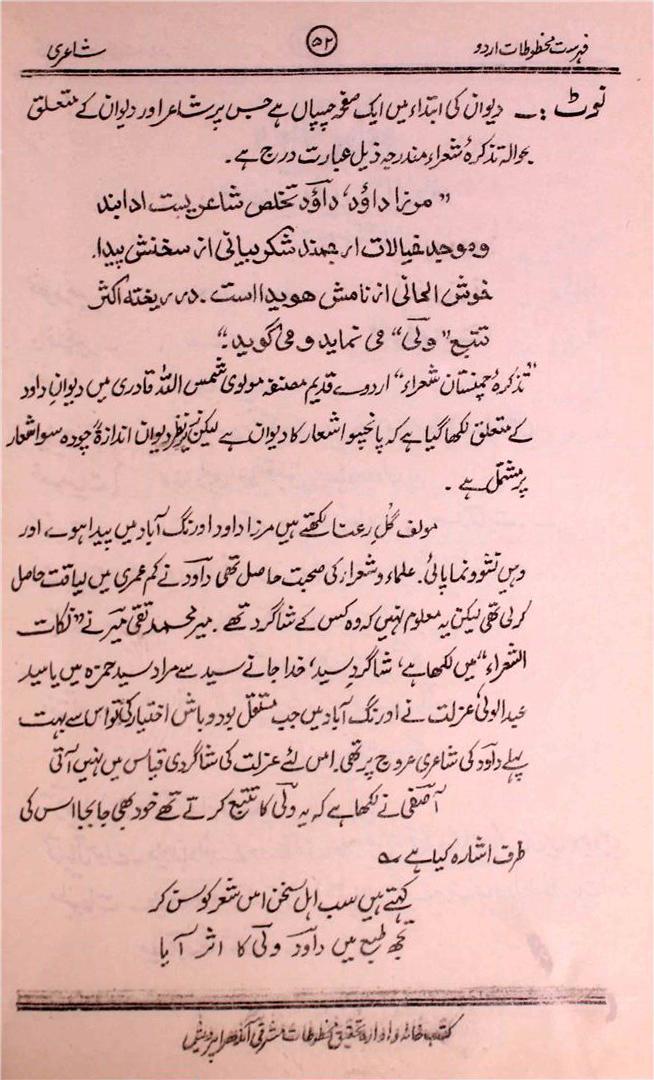 فہرست مخطوطات اردو ۵۲ شاعری
نوٹ :۔ دیوان کی ابتداء میں ایک صفحہ چسپاں ہے جس پر شاعر اور دیوان کے متعلق
بحوالہ تذکرۂ شعراء مندرجہ ذیل عبارت درج ہے۔
” مرزا داؤد، داؤد تخلص شاعریست ادابند
وموحید خیالات ارجمند شکر بیانی از سخنش پیدا،
خوش الحانی از نامش هویدا است ۔ در ریخته اکثر
تتبع ”ولی“ می نماید و می گوید۔“
”تذکرۂ چمنستان شعراء“ اردوے قدیم مصنفہ مولوی شمس اللہ قادری میں دیوان داود
کے متعلق لکھا گیا ہے کہ پانچسو اشعار کا دیوان ہے لیکن زیر نظر دیوان اندازۃً چودہ سو اشعار
پر مشتمل ہے ۔
مولف گل رعنا لکھتے ہیں مرزا داود اورنگ آباد میں پیدا ہوے اور
وہیں نشوونما پائی۔ علماء و شعراء کی صحبت حاصل تھی داؤد نے کم عمری میں لیاقت حاصل
کرلی تھی لیکن یہ معلوم نہیں کہ وہ کس کے شاگرد تھے ۔ میر محمد تقی میر نے ”نکات
الشعراء“ میں لکھا ہے، شاگرد سید، خدا جانے سید سے مراد سید حمزہ ہیں یا سید
عبدالولی عزلت نے اورنگ آباد میں جب مستقل بود و باش اختیار کی تو اس سے بہت
پہلے داؤد کی شاعری عروج پر تھی۔ اس لئے عزلت کی شاگردی قیاس میں نہیں آتی
آصفی نے لکھا ہے کہ یہ ولی کا تتبع کرتے تھے خود بھی جابجا اس کی
طرف اشارہ کیا ہے ؎
کہتے ہیں سب اہل سخن اس شعر کو سن کر
تجھ طبع میں داؤد ولی کا اثر آیا
کتب خانہ و ادارہ تحقیق مخطوطات مشرقی آندھرا پردیش